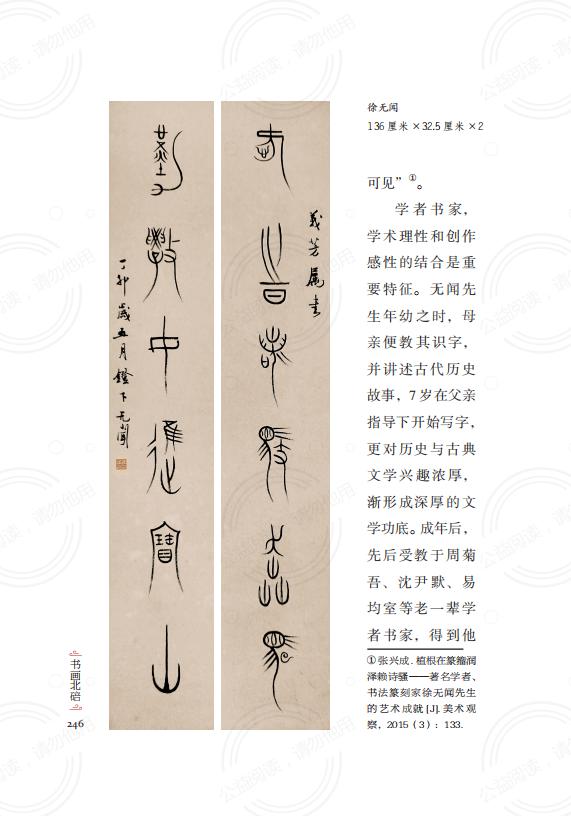 徐无闻
136 厘米 ×32.5 厘米 ×2
義芳属書
中寶山
丁卯歲五月鐙下无聞
可见”①。
学者书家，
学术理性和创作
感性的结合是重
要特征。无闻先
生年幼之时，母
亲便教其识字，
并讲述古代历史
故事，7 岁在父亲
指导下开始写字，
更对历史与古典
文学兴趣浓厚，
渐形成深厚的文
学功底。成年后，
先后受教于周菊
吾、沈尹默、易
均室等老一辈学
者书家，得到他
①张兴成. 植根在篆籀润
泽赖诗骚——著名学者、
书法篆刻家徐无闻先生
的艺术成就 [J]. 美术观
察，2015（3）：133.
书画北碚
246
公益阅读，请勿他用